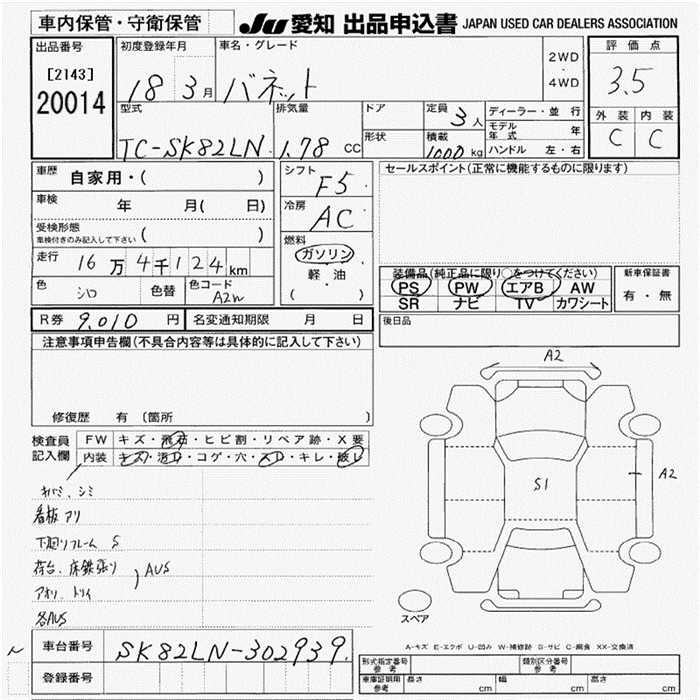 車内保管・守衛保管
JU 愛知 出品申込書 JAPAN USED CAR DEALERS ASSOCIATION
出品番号 初度登録年月 車名・グレード 2WD・4WD 評価点
[2143]
20014
18 3月 バネット 3.5
型式 排気量 ドア 定員 3人 ディーラー・並行
外装 内装
モデル年式 年
形状 積載 1000kg ハンドル 左・右
TC-SK82LN 1.78 CC C C
車歴 自家用・( )
シフト F5
セールスポイント(正常に機能するものに限ります)
車検 年 月( 日)
冷房 AC
受検形態
車検付きのみ記入して下さい ( )
燃料 ガソリン
軽油
( )
走行 16万4千124km
装備品(純正品に限り○をつけてください) 新車保証書
PS PW エアB AW 有・無
SR ナビ TV カワシート
色 シロ 色替 色コード A2W
R券 9,010円 名変通知期限 月 日
後日品
注意事項申告欄(不具合内容等は具体的に記入して下さい)
修復歴 有 〔箇所
A2
検査員記入欄
FW キズ・飛石・ヒビ割・リペア跡・X要
内装 キズ・汚レ・コゲ・穴・スレ・キレ・破レ
A2
S1
キバミ、シミ
看板アリ
下廻リフレーム S
荷台、床鉄張リ AUS
アオリ、トリイ
各AUS
スペア
A-キズ E-エクボ U-凹ミ W-補修跡 S-サビ C-腐食 XX-交換済
車台番号 SK82LN-302939
登録番号
形式指定番号 参考 類別区分番号 参考
車庫証明用 参考 長さ cm 幅 cm 高さ cm